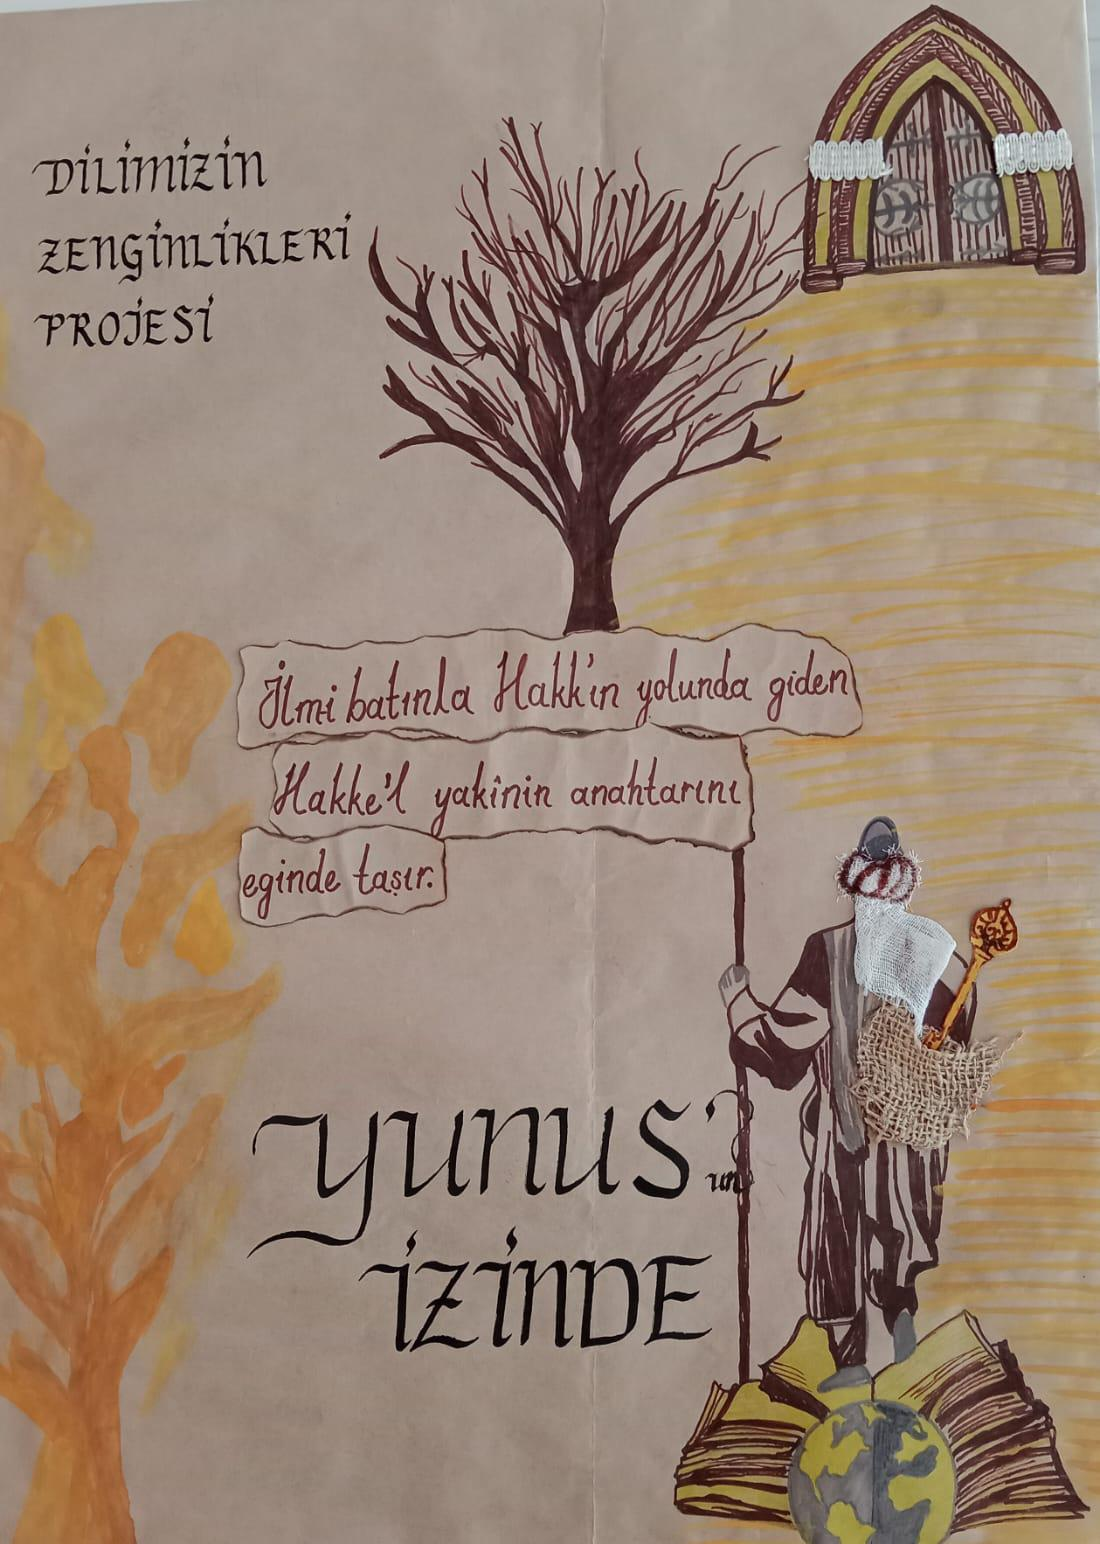 DİLİMİZİN
ZENGİNLİKLERİ
PROJESİ
İlmi batınla Hakk'ın yolunda giden
Hakke'l yakînin anahtarını
eginde taşır.
YUNUS'un
İZİNDE